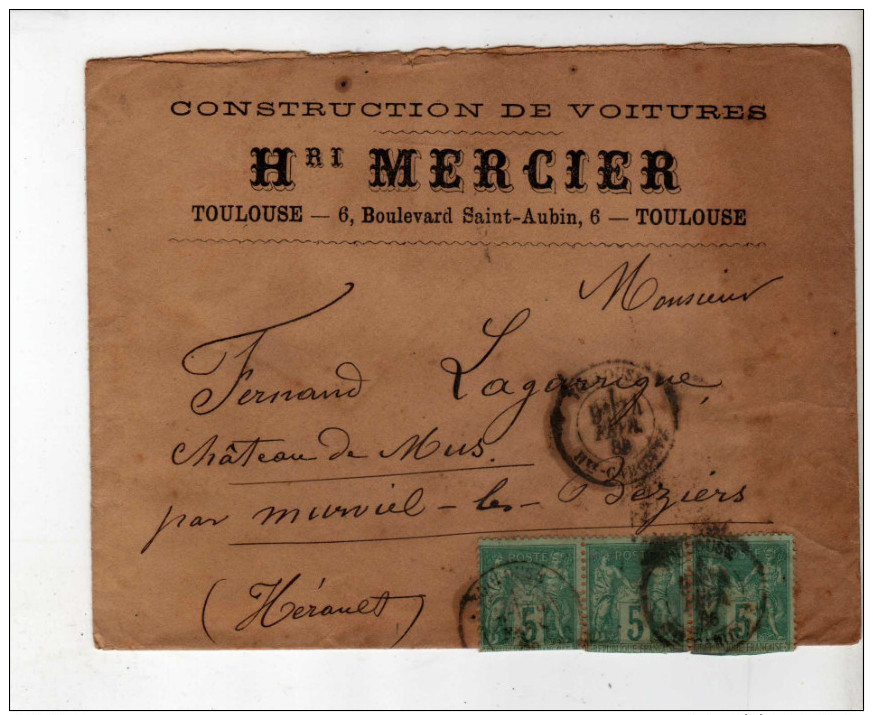 CONSTRUCTION DE VOITURES
HRI MERCIER
TOULOUSE — 6, Boulevard Saint-Aubin, 6 — TOULOUSE
Monsieur
Fernand Lagarrigue,
château de Mus.
par murviel-les-Béziers
(Hérault)
TOULOUSE
Hte-GARONNE
POSTE POSTE POSTE
5 5 5
REPUBLIQUE FRANÇAISE